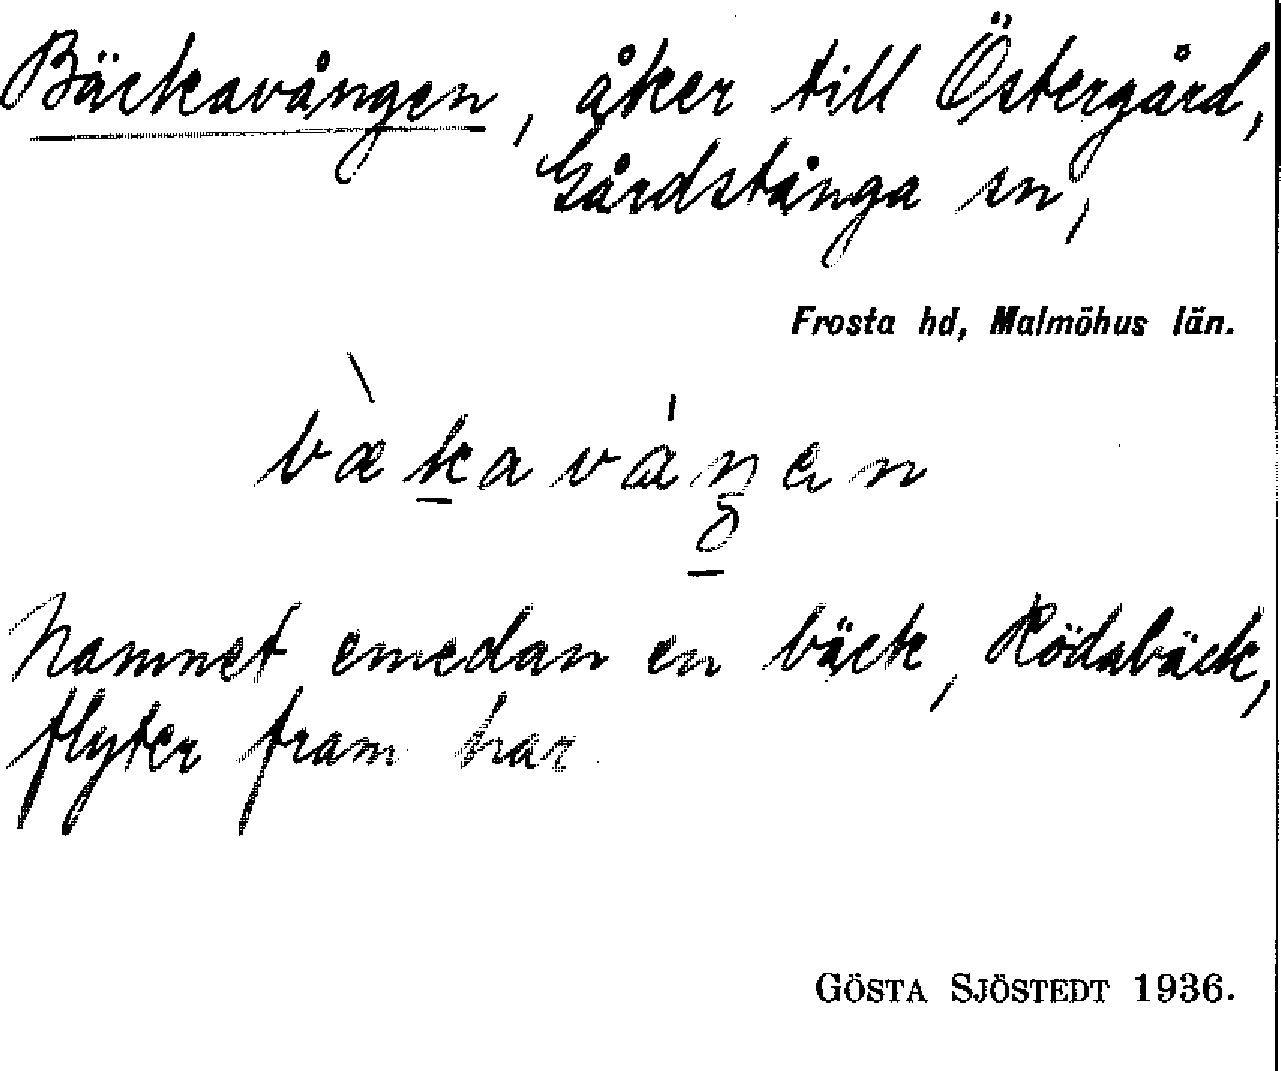 Bäckavången, åker till Östergård,
Gårdstånga sn,
Frosta hd, Malmöhus län.
bækavåŋen
Namnet emedan en bäck, Rödabäck,
flyter fram här.
GÖSTA SJÖSTEDT 1936.